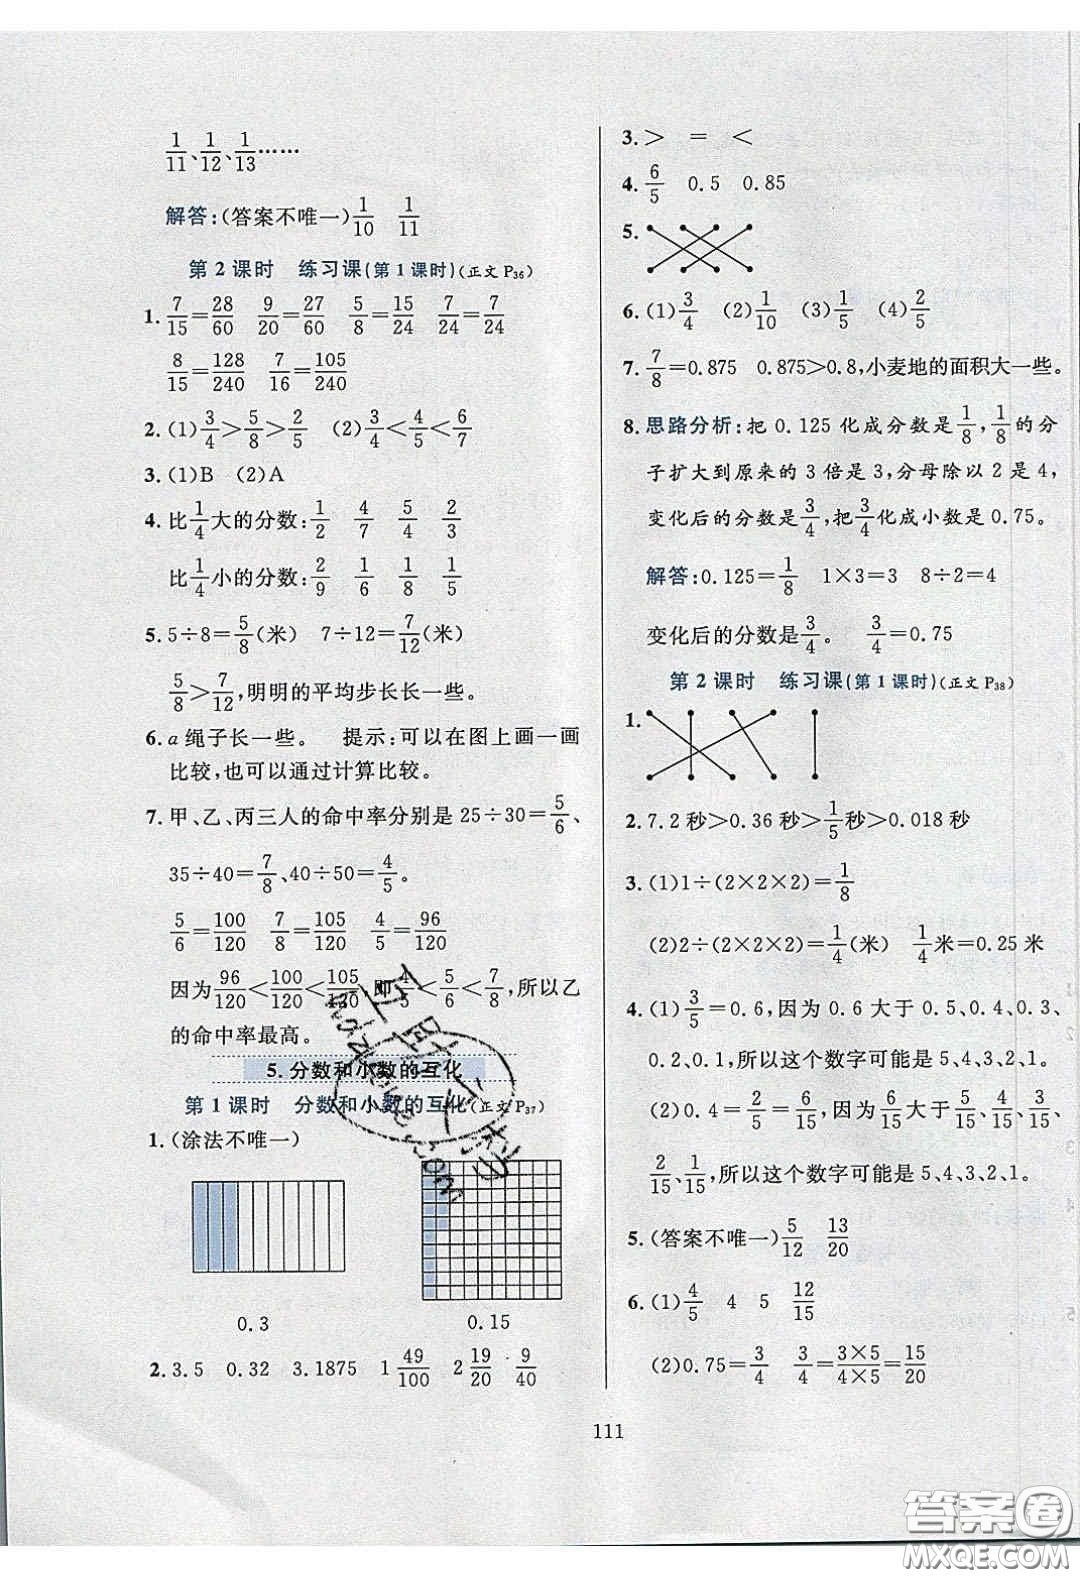 1/11、1/12、1/13……
解答:(答案不唯一)1/10 1/11
第 2 课时 练习课(第 1 课时)(正文 P36)
1. 7/15=28/60 9/20=27/60 5/8=15/24 7/24=7/24
8/15=128/240 7/16=105/240
2. (1)3/4>5/8>2/5 (2)3/4<4/5<6/7
3. (1)B (2)A
4. 比1/4大的分数:1/2 4/7 5/4 2/3
比1/4小的分数:2/9 1/6 1/8 1/5
5. 5÷8=5/8(米) 7÷12=7/12(米)
5/8>7/12,明明的平均步长长一些。
6. a绳子长一些。 提示:可以在图上画一画
比较,也可以通过计算比较。
7. 甲、乙、丙三人的命中率分别是 25÷30=5/6、
35÷40=7/8、40÷50=4/5。
5/6=100/120 7/8=105/120 4/5=96/120
因为96/120<100/120<105/120,即4/5<5/6<7/8,所以乙
的命中率最高。
5. 分数和小数的互化
第 1 课时 分数和小数的互化(正文 P37)
1. (涂法不唯一)
0.3 0.15
2. 3.5 0.32 3.1875 1 49/100 2 19/20 9/40
3. > = <
4. 6/5 0.5 0.85
5.
6. (1)3/4 (2)1/10 (3)1/5 (4)2/5
7. 7/8=0.875 0.875>0.8,小麦地的面积大一些。
8. 思路分析:把 0.125 化成分数是1/8,1/8的分
子扩大到原来的 3 倍是 3,分母除以 2 是 4,
变化后的分数是3/4,把3/4化成小数是 0.75。
解答:0.125=1/8 1×3=3 8÷2=4
变化后的分数是3/4。 3/4=0.75
第 2 课时 练习课(第 1 课时)(正文 P38)
1.
2. 7.2 秒>0.36 秒>1/5秒>0.018 秒
3. (1)1÷(2×2×2)=1/8
(2)2÷(2×2×2)=1/4(米) 1/4米=0.25 米
4. (1)3/5=0.6,因为 0.6 大于 0.5、0.4、0.3、
0.2、0.1,所以这个数字可能是 5、4、3、2、1。
(2)0.4=2/5=6/15,因为6/15大于5/15、4/15、3/15、
2/15、1/15,所以这个数字可能是 5、4、3、2、1。
5. (答案不唯一)5/12 13/20
6. (1)4/5 4 5 12/15
(2)0.75=3/4 3/4=3×5/4×5=15/20
111
答案圈
MXQE.COM